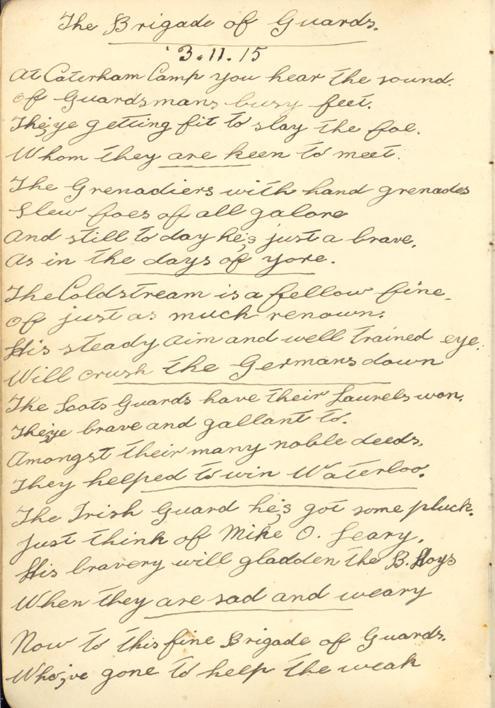 The Brigade of Guards.
3.11.15
At Caterham Camp you hear the sound.
of Guardsmans busy feet.
They;ye getting fit to slay the foe.
Whom they are keen to meet.
The Grenadiers with hand grenades
Slew foes of all galore
And still to day he;s just a brave,
As in the days of yore.
The Coldstream is a fellow fine.
of just as much renown.
His steady aim and well trained eye.
Will crush the Germans down
The Scots Guards have their Laurels won.
They;ye brave and gallant to.
Amongst their many noble deeds.
They helped to win Waterloo.
The Irish Guard he;s got some pluck.
Just think of Mike O. Leary.
His bravery will gladden the B. Hoys
When they are sad and weary
Now to this fine Brigade of Guards.
Who;ve gone to help the weak